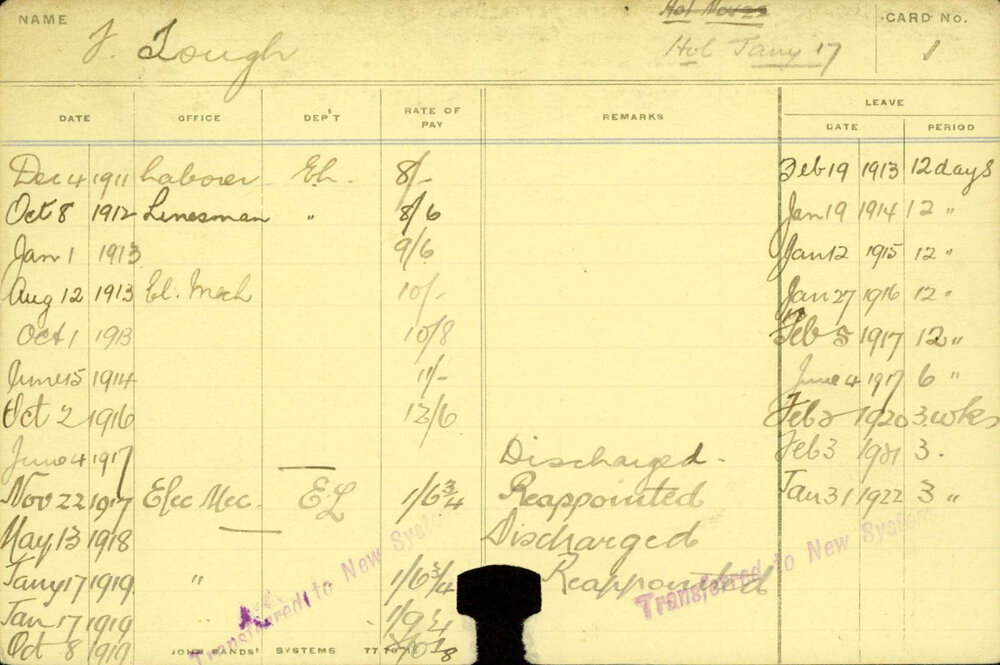 NAME
Hol Nov 22
CARD No.
F. Tough
Hol Jany 17
1
DATE OFFICE DEP'T RATE OF PAY REMARKS LEAVE
DATE PERIOD
Dec 4 1911 Laborer El. 8/- Feb 19 1913 12 days
Oct 8 1912 Linesman " 8/6 Jan 19 1914 12 "
Jan 1 1913 9/6 Jan 12 1915 12 "
Aug 12 1913 El. Mech 10/- Jan 27 1916 12 "
Oct 1 1913 10/8 Feb 5 1917 12 "
June 15 1914 11/- June 4 1917 6 "
Oct 2 1916 12/6 Feb 2 1920 3 wks
June 4 1917 Discharged - Feb 3 1921 3 .
Nov 22 1917 Elec Mec. EL 1/6¾ Reappointed Jan 31 1922 3 "
May 13 1918 Discharged
Jany 17 1919 " 1/6¾ Reappointed
Jan 17 1919
Oct 8 1919
Transferred to New System
Transferred to New System
JOHN SANDS' SYSTEMS